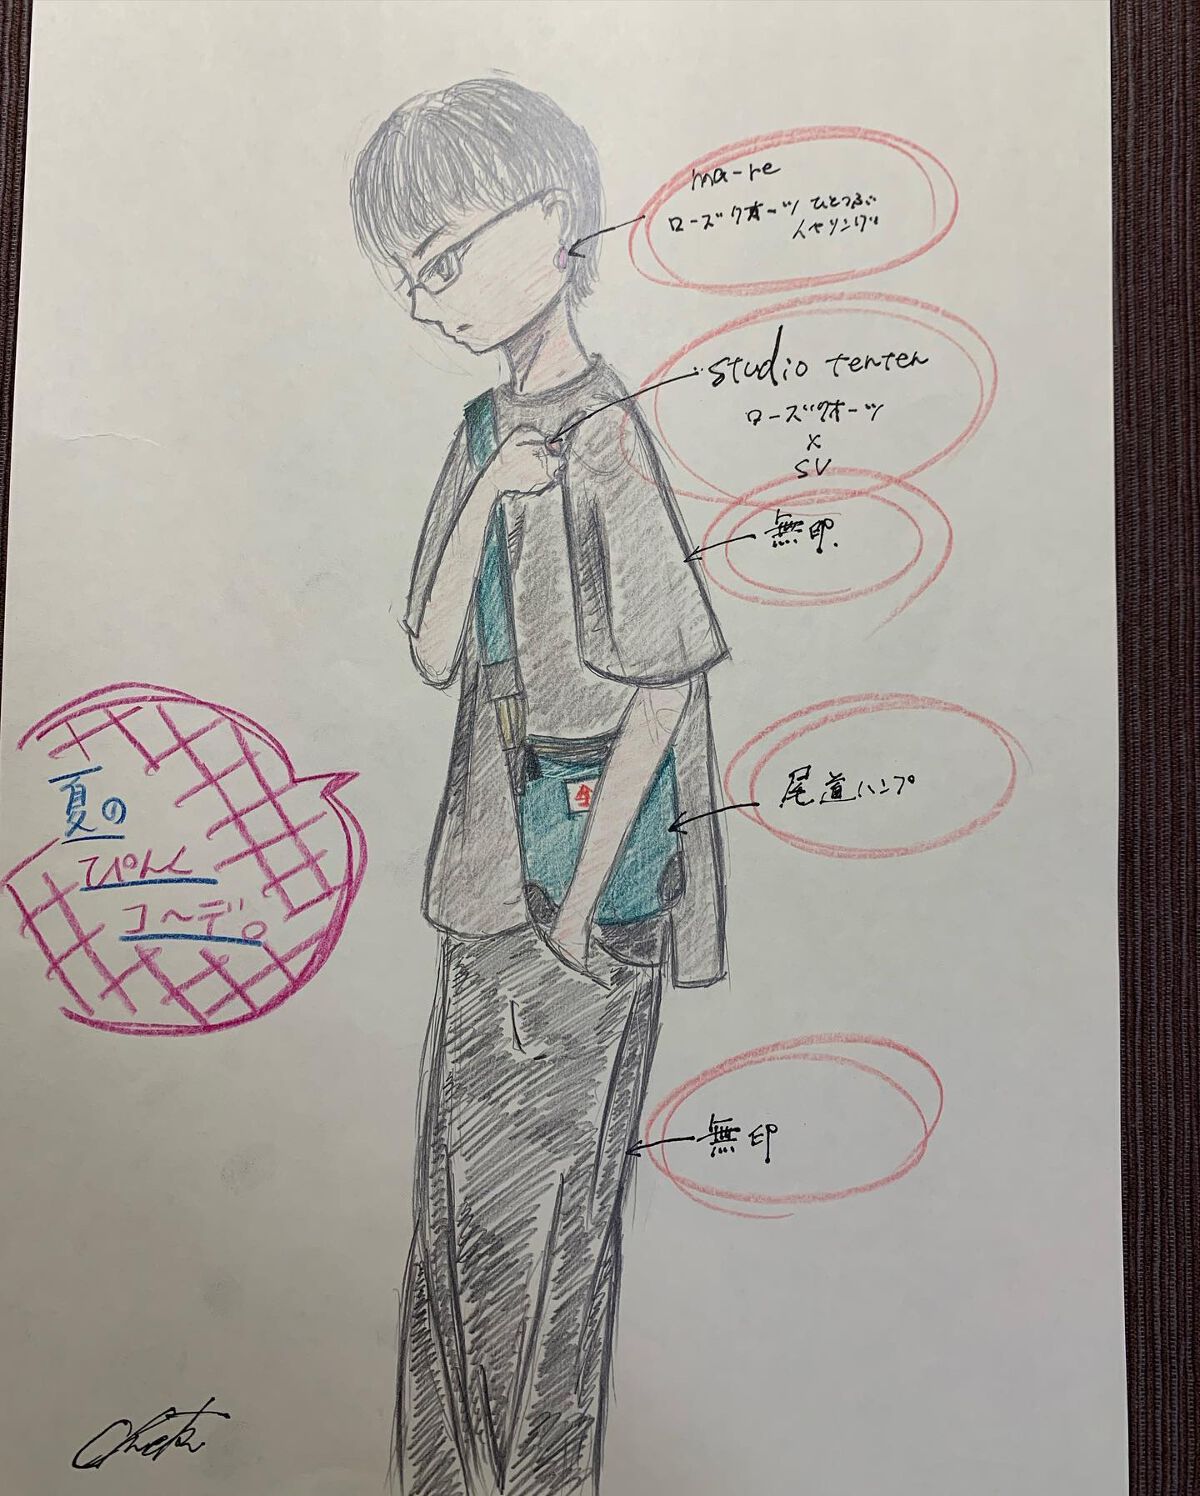 ma-re
ローズクオーツ ひとつぶ
イヤリング
studio tenten
ローズクオーツ
×
SV
無印.
尾道ハンプ
無印
夏の
ぴんく
コ〜デ。